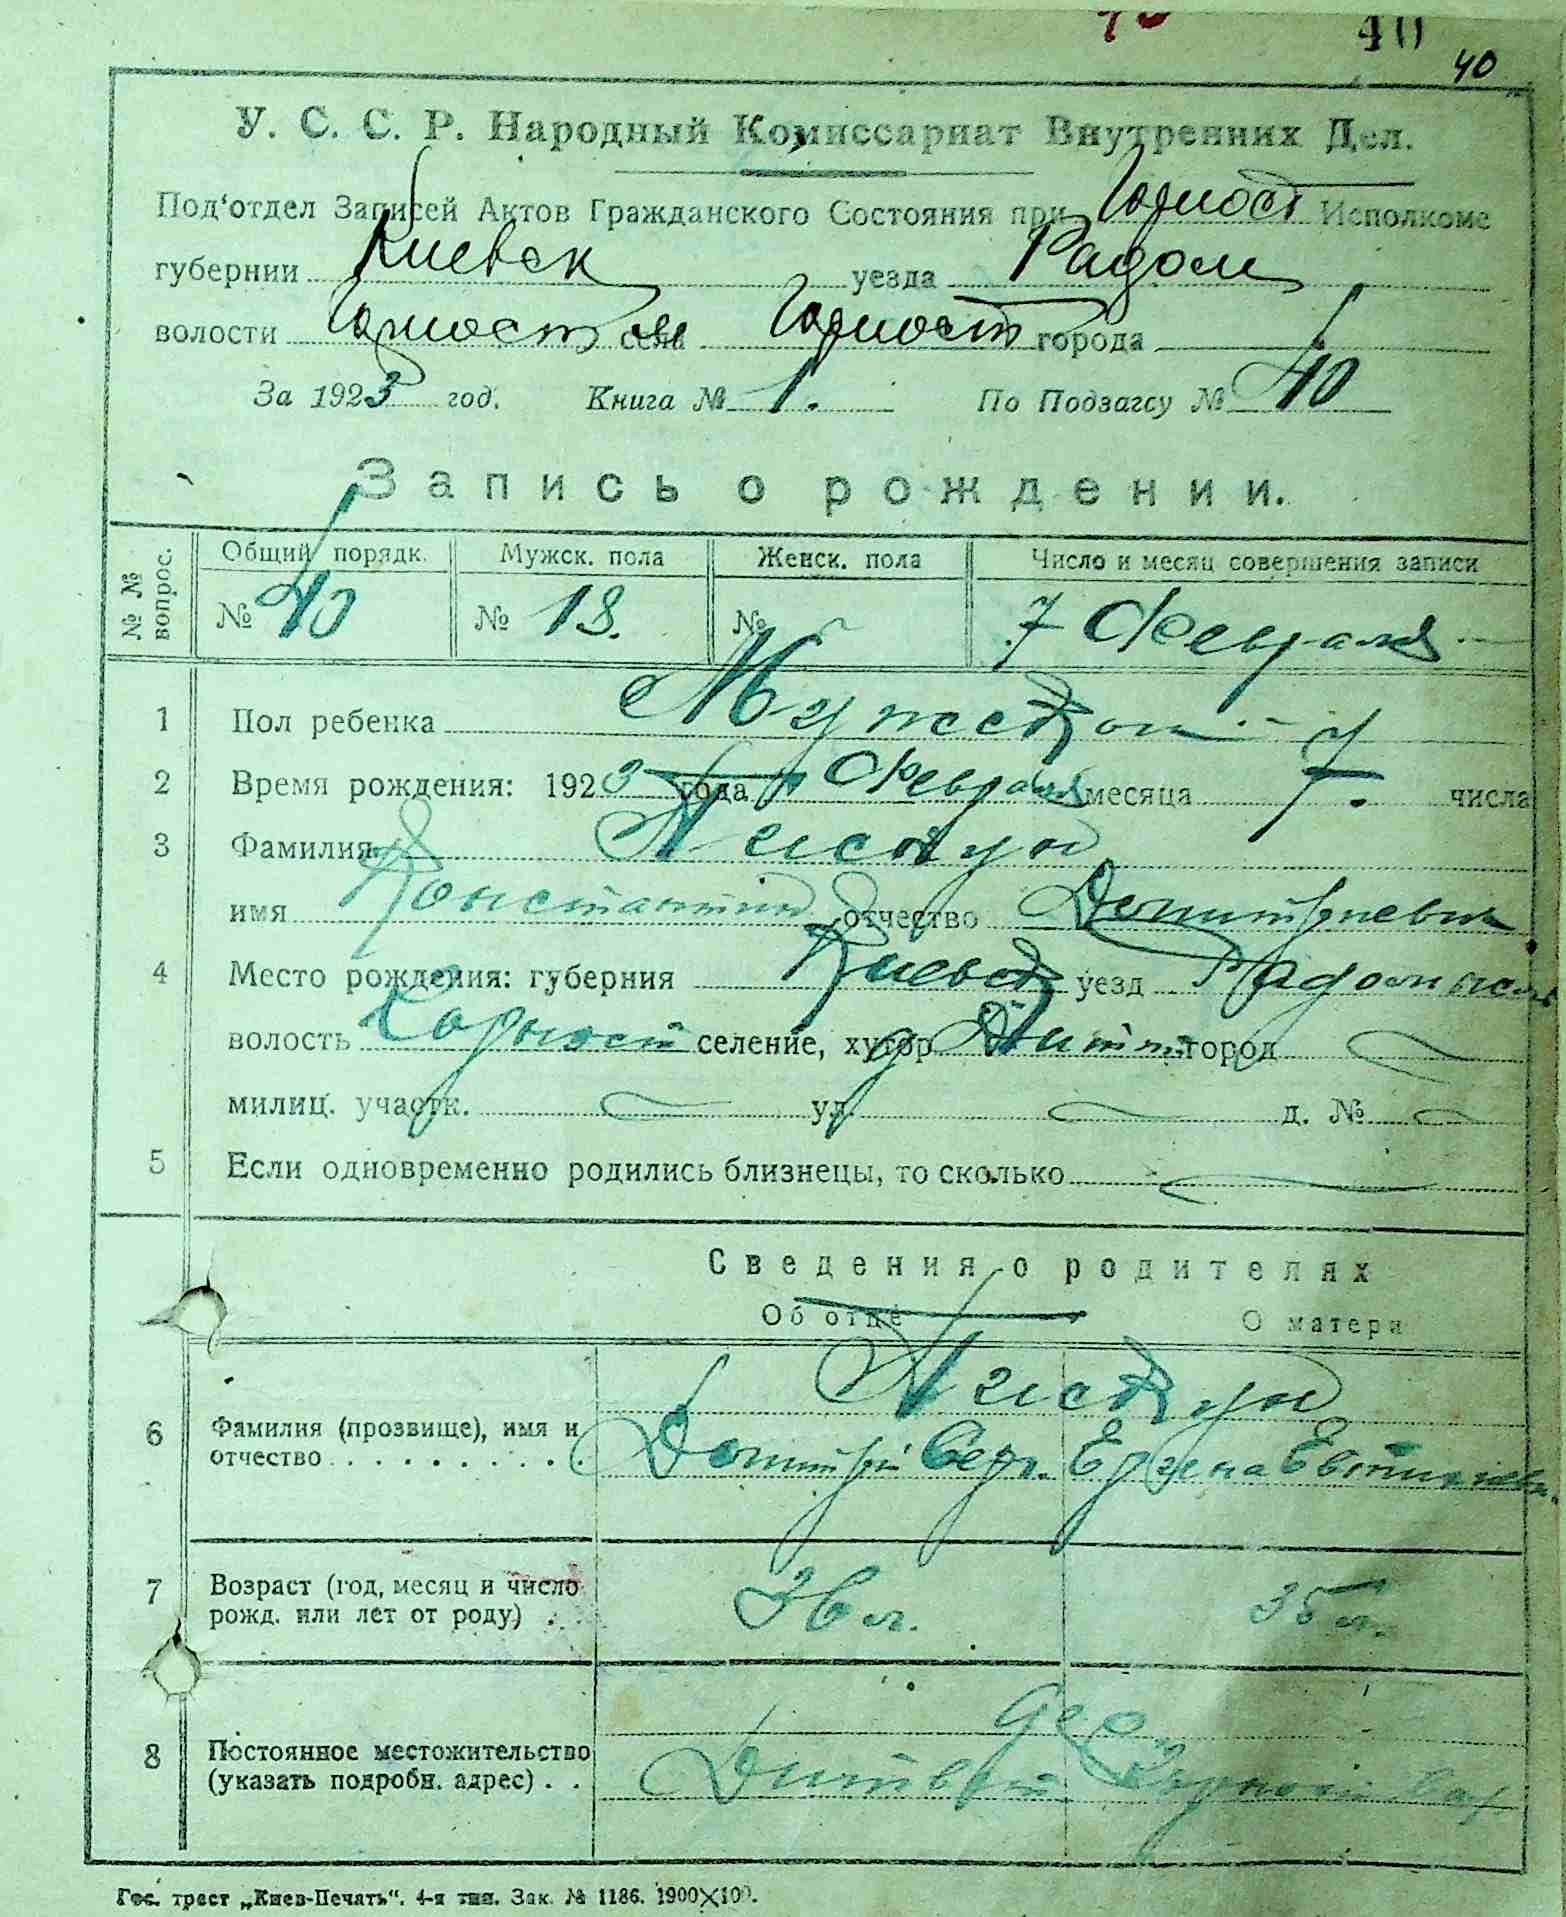 40
40
У. С. С. Р. Народный Комиссариат Внутренних Дел.
Под'отдел Записей Актов Гражданского Состояния при Горност Исполкоме
губернии Киевск уезда Радом
волости Горност села Горност города
За 1923 год. Книга № 1. По Подзагсу № 40
Запись о рождении.
№ № вопрос. Общий порядк. Мужск. пола Женск. пола Число и месяц совершения записи
№ 40 № 18. № 7 Февраля
1 Пол ребенка Мужской
2 Время рождения: 1923 года Февраля месяца 7. числа
3 Фамилия
имя Константин отчество Дмитриевич
4 Место рождения: губерния Киевск уезд Радомысль
волость Горност селение, хутор город
милиц. участк. ул. д. №
5 Если одновременно родились близнецы, то сколько
Сведения о родителях
Об отце О матери
6 Фамилия (прозвище), имя и
отчество
7 Возраст (год, месяц и число 36 л. 35 л.
рожд. или лет от роду)
8 Постоянное местожительство
(указать подробн. адрес)
Гос. трест „Киев-Печать“. 4-я тип. Зак. № 1186. 1900×100.